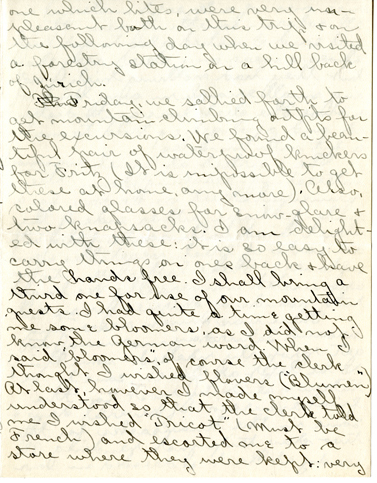 one which bite, were very un-
pleasant both on this trip & on
the following day when we visited
a forestry station on a hill back
of
Friday, we sallied forth to
get mountain climbing outfits for
the excursions. We found a beau-
tiful pair of waterproof knickers
for Fritz (It is impossible to get
these at home any more). Also,
colored glasses for snow-glare &
two knapsacks. I am delight-
ed with these: it is so easy to
carry things on ones back & have
the hands free. I shall bring a
third one for use of our mountain
guests. I had quite a time getting
me some bloomers, as I did not
know the German word. When I
said "bloomers", of course the clerk
thought I wished flowers ("Blumen")
At last, however, I made myself
understood so that the clerk told
me I wished "Tricot" (Must be
French) and escorted me to a
store where they were kept: very